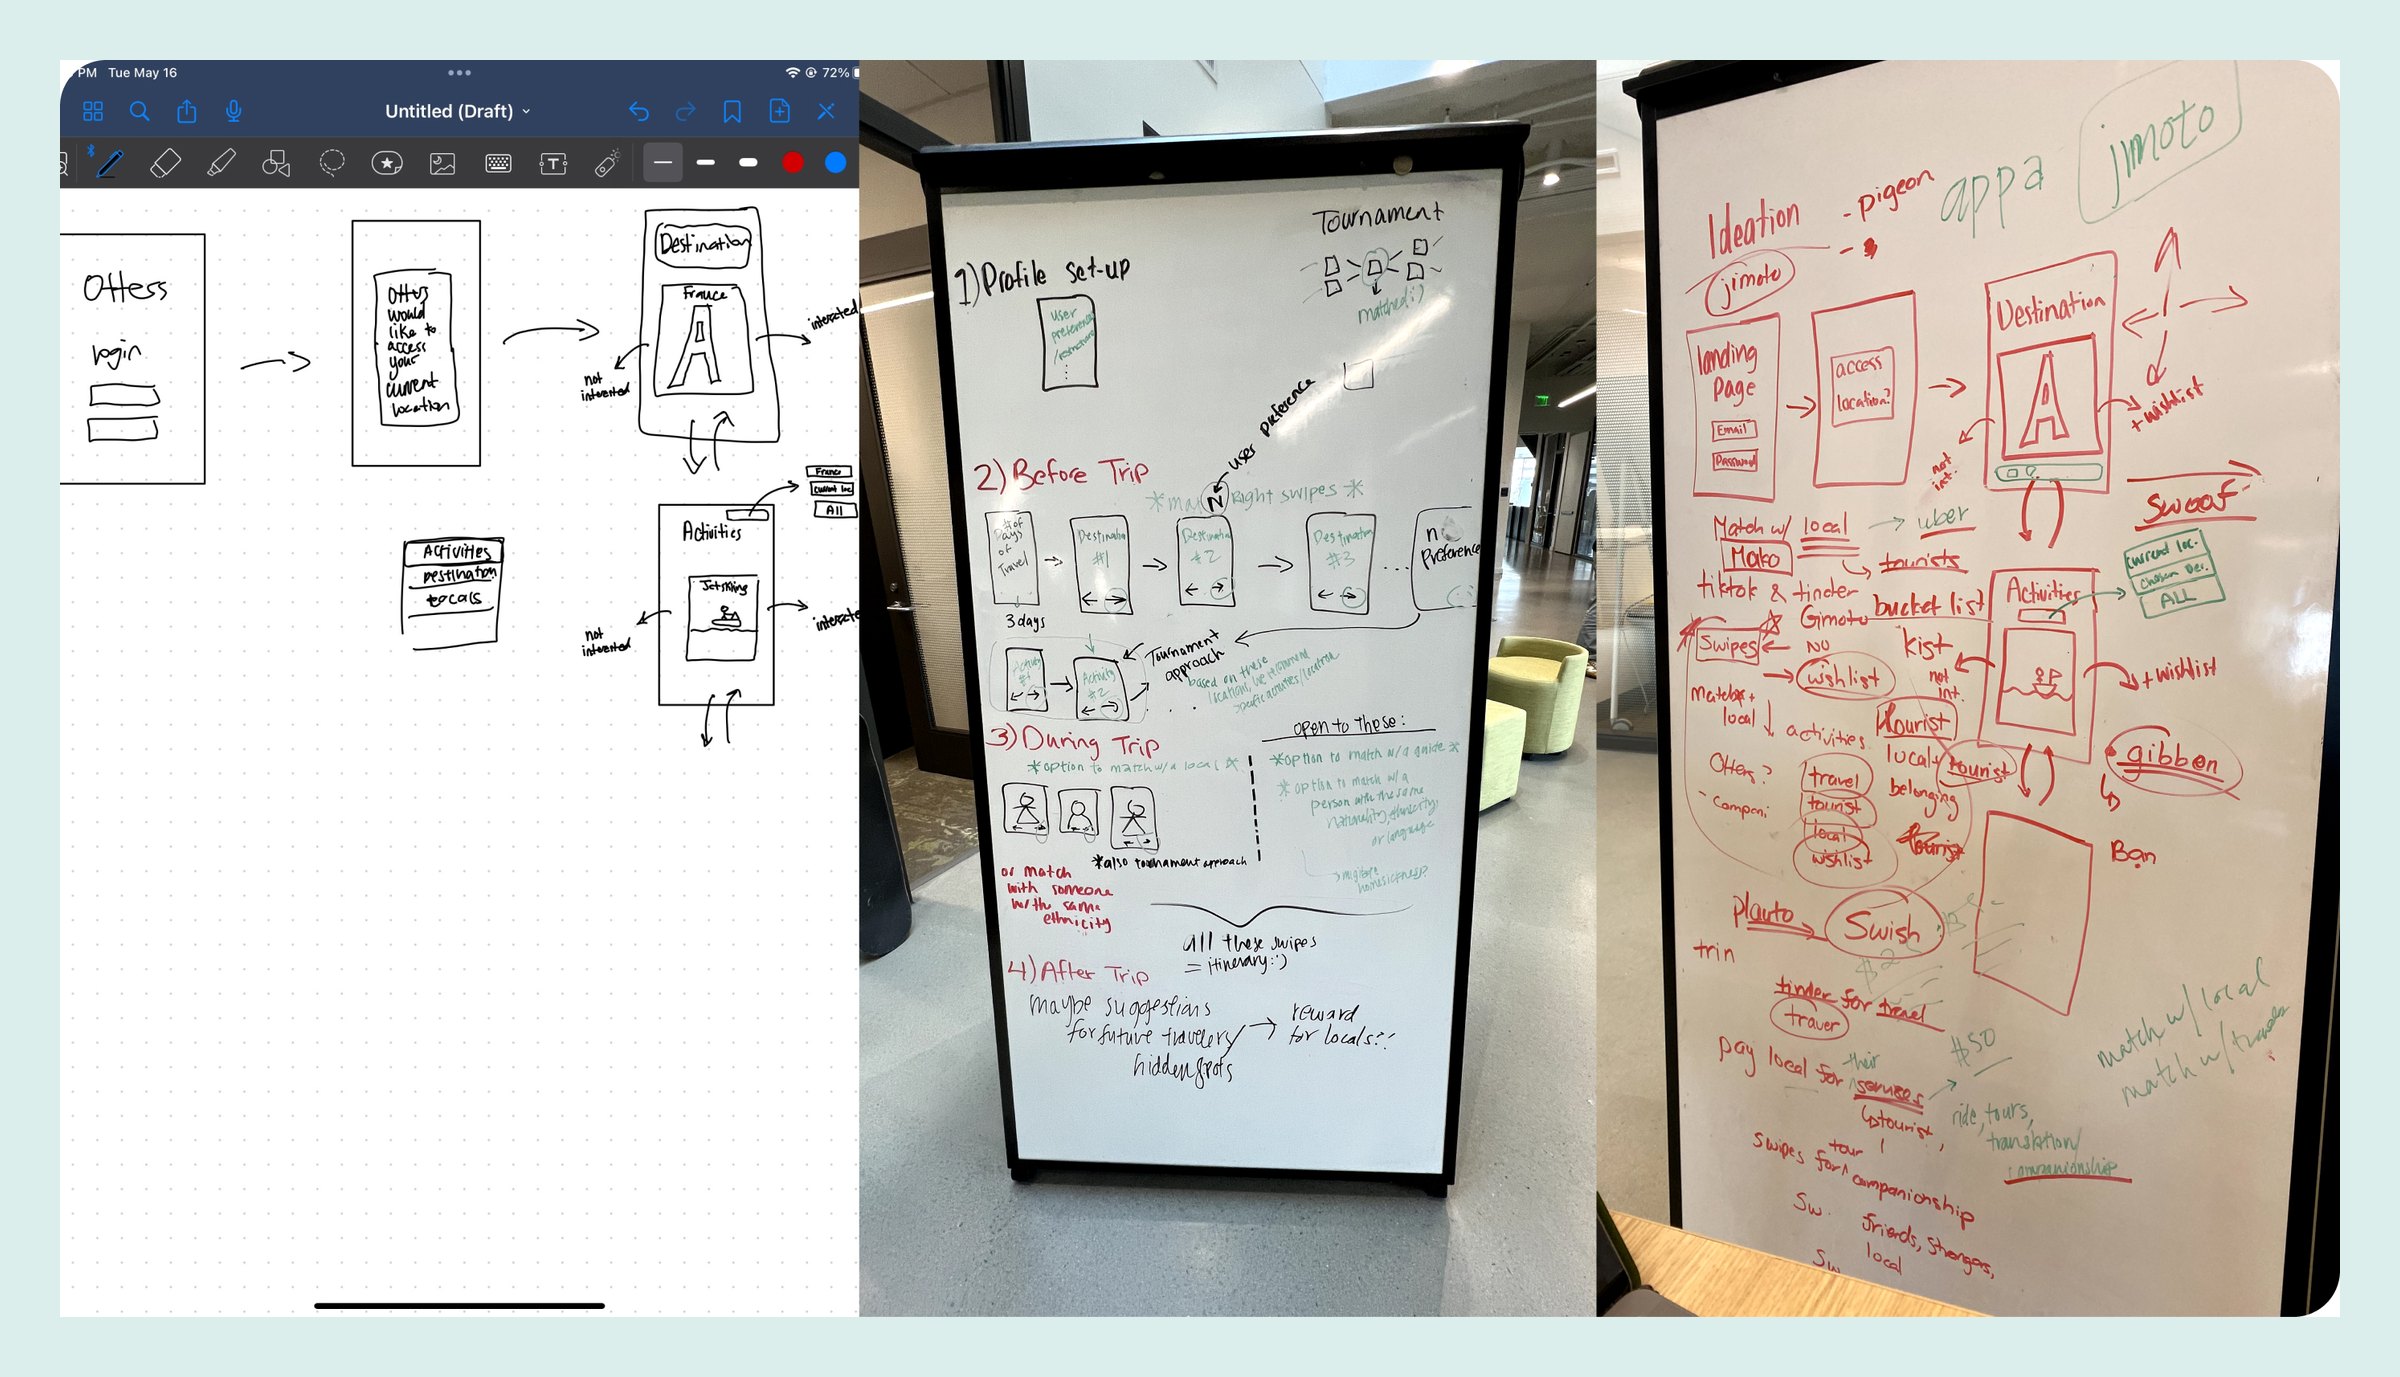 PM Tue May 16
72%
Untitled (Draft)
Otters
login
Otters
would
like to
access
your
current
location
Destination
France
not
interested
interested
France
Current loc
All
Activities
Jetskiing
not
interested
Activities
Destination
Locals
Tournament
matched:)
1) Profile set-up
user
preferences
/restrictions
user preference
2) Before Trip
Right swipes *
N
# of
Days
of
Travel
3 days
Destination
#1
Destination
#2
Destination
#3
...
Preference
Activity
#1
Activity
#2
Tournament
approach
based on these
locations, we recommend
specific activities/location
3) During Trip
*option to match w/ a local *
*also tournament approach
or match
with someone
with same
ethnicity
open to these:
*option to match w/ a guide *
* option to match w/ a
person with the same
nationality, ethnicity,
or language
homesickness?
all these swipes
= itinerary:')
4) After Trip
maybe suggestions
for future travelers/
hidden spots
reward
for locals??
Ideation
- pigeon
appa
jimoto
jimoto
landing
Page
Email
Password
access
location?
Destination
+ wishlist
not
int.
Match w/ local
uber
Mako
tourists
tiktok & tinder
bucket list
Swipes
Gimoto
NO
wishlist
kist
not
int.
local
activities
Otters?
- compani
travel
tourist
local
wishlist
local +
tourist
belonging
tourist
Activities
current loc.
chosen Des.
ALL
+ wishlist
gibben
Ban
plauto
Swish
trin
tinder for travel
traver
pay local for their services
$50
tourist,
ride, tours,
translation/
companionship
swipes for tour
companionship
Sw.
friends, strangers,
local
Sw
match w/ local
match w/